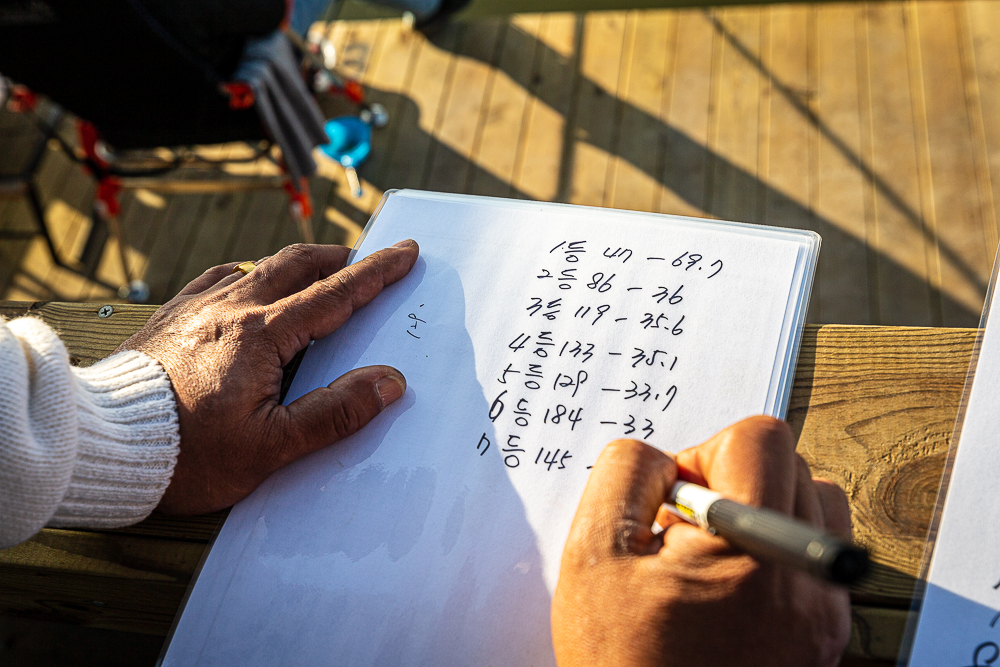 1등 47 - 69.7
2등 86 - 36
3등 119 - 35.6
4등 133 - 35.1
5등 129 - 33.7
6등 184 - 33
7등 145 -
129